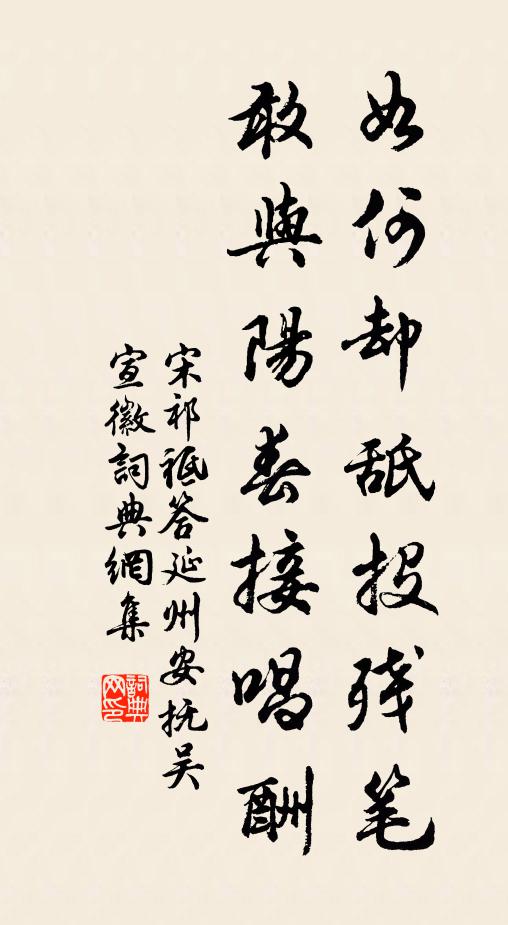 如何却舐投残笔
敢與陽春接唱酬
宋祁祗答延州安抚吴
宣徽詞典網集
詞典網印